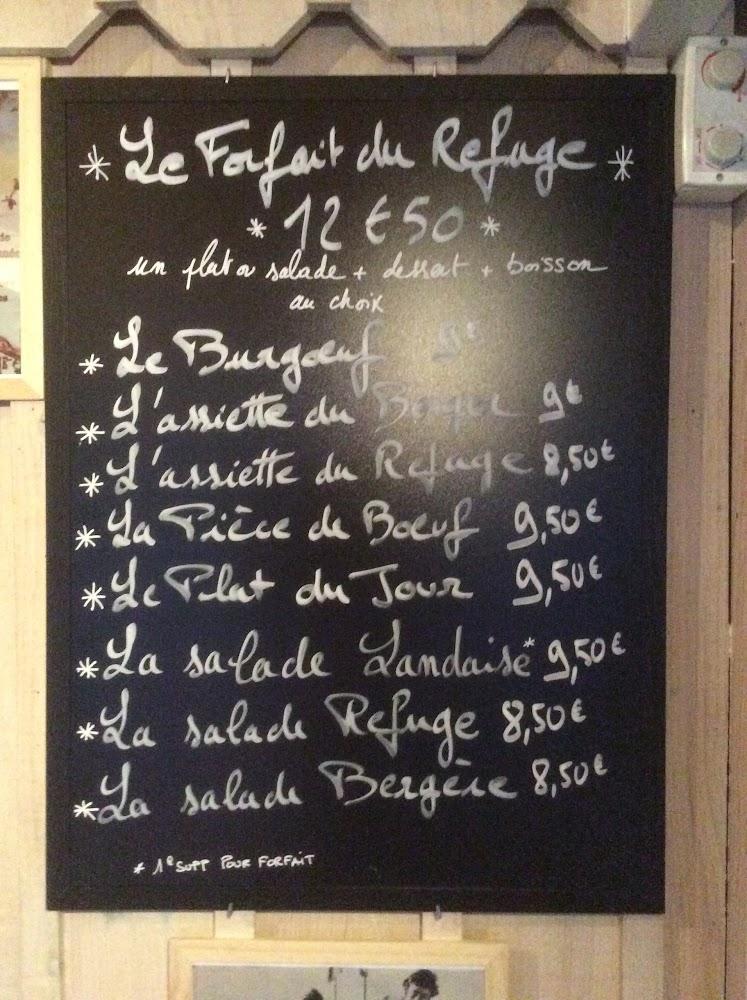 * Le Forfait du Refuge *
* 12 €50 *
un plat ou salade + dessert + boisson
au choix
* Le Burgœuf 9€
* L'assiette du Berger 9€
* L'assiette du Refuge 8,50€
* La Pièce de Boeuf 9,50€
* Le Plat du Jour 9,50€
* La salade Landaise* 9,50€
* La salade Refuge 8,50€
* La salade Bergère 8,50€
* 1€ SUPP POUR FORFAIT